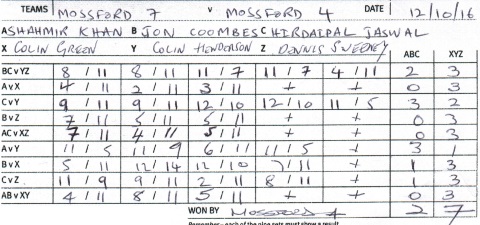 TEAMS MOSSFORD 7 V MOSSFORD 4 DATE 12/10/16
A SHAHMIR KHAN B JON COOMBES C HIRDAIPAL JASWAL
X COLIN GREEN Y COLIN HENDERSON Z DENNIS SWEENEY ABC XYZ
BC v YZ 8 / 11 8 / 11 11 / 7 11 / 7 4 / 11 2 3
A v X 4 / 11 2 / 11 3 / 11 + + 0 3
C v Y 9 / 11 9 / 11 12 / 10 12 / 10 11 / 5 3 2
B v Z 7 / 11 5 / 11 5 / 11 + + 0 3
AC v XZ 7 / 11 4 / 11 5 / 11 + + 0 3
A v Y 11 / 5 11 / 9 6 / 11 11 / 5 + 3 1
B v X 5 / 11 12 / 14 12 / 10 7 / 11 + 1 3
C v Z 11 / 9 9 / 11 2 / 11 8 / 11 + 1 3
AB v XY 4 / 11 8 / 11 5 / 11 + + 0 3
WON BY MOSSFORD 4 2 7
Remember – each of the nine sets must show a result